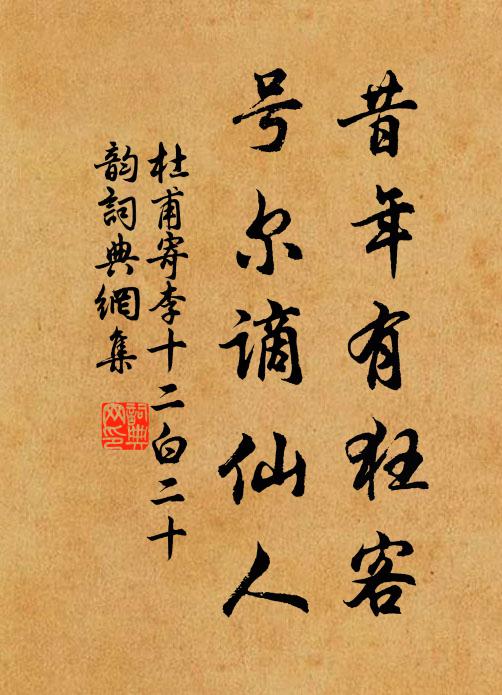 昔年有狂客
号尔谪仙人
杜甫寄李十二白二十
韵詞典網集
詞典网印